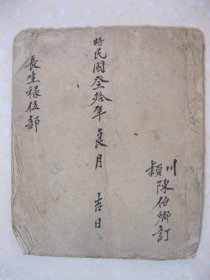 穎川
陳伯卿訂
時民國叁拾年良月吉日
長生祿位部